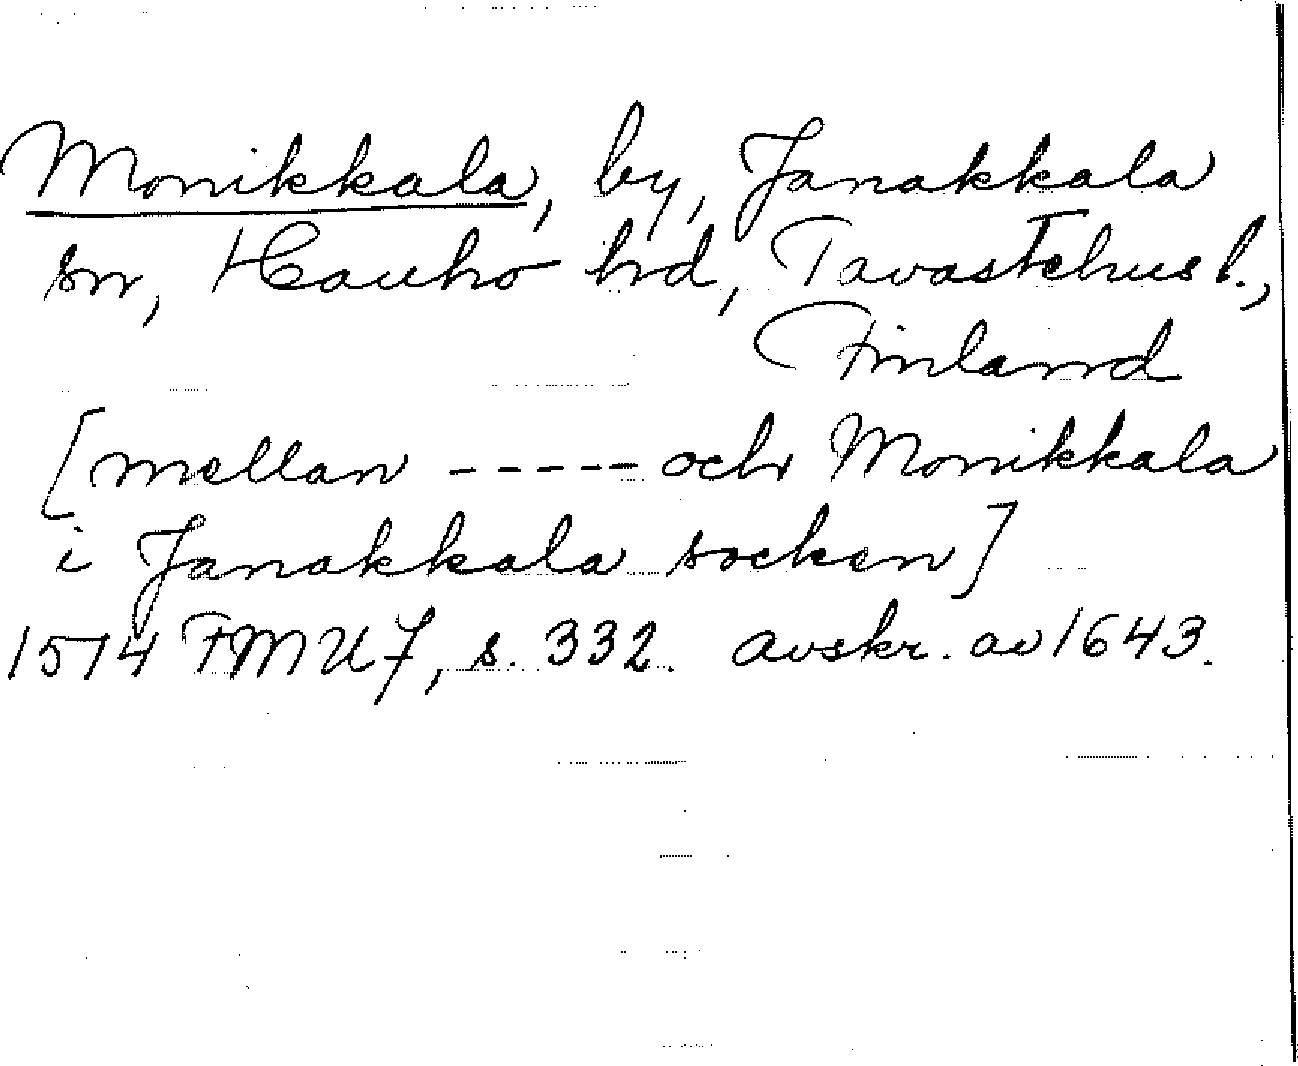 Monikkala, by, Janakkala
sn, Hauho hd, Tavastehus l.,
Finland
[mellan ----- och Monikkala
i Janakkala socken]
1514 FMU 7, s. 332. avskr. av 1643.